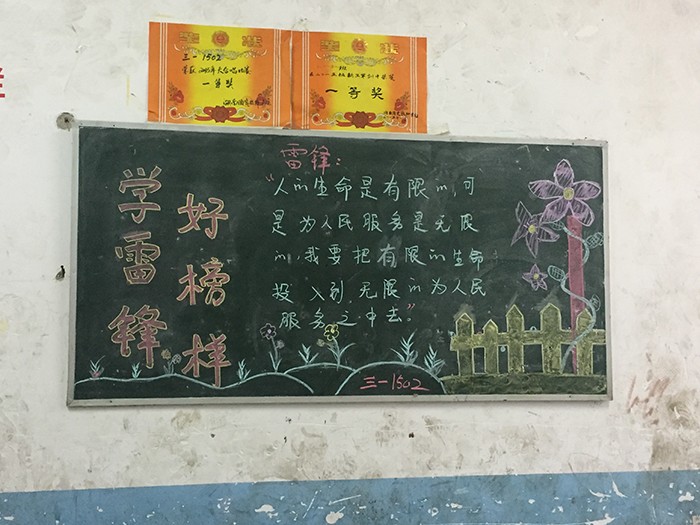 三一1502
一等奖
一等奖
学雷锋
好榜样
雷锋：
“人的生命是有限的，可
是为人民服务是无限
的，我要把有限的生命
投入到无限的为人民
服务之中去”
三一1502